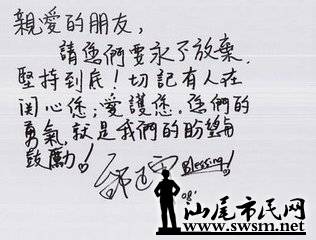 親愛的朋友,
請您們要永不放棄.
堅持到底!切記有人在
関心您;愛護您,您們的
勇氣,就是我們的盼望与
鼓勵!
Blessing!
08'
汕尾市民网
www.swsm.net